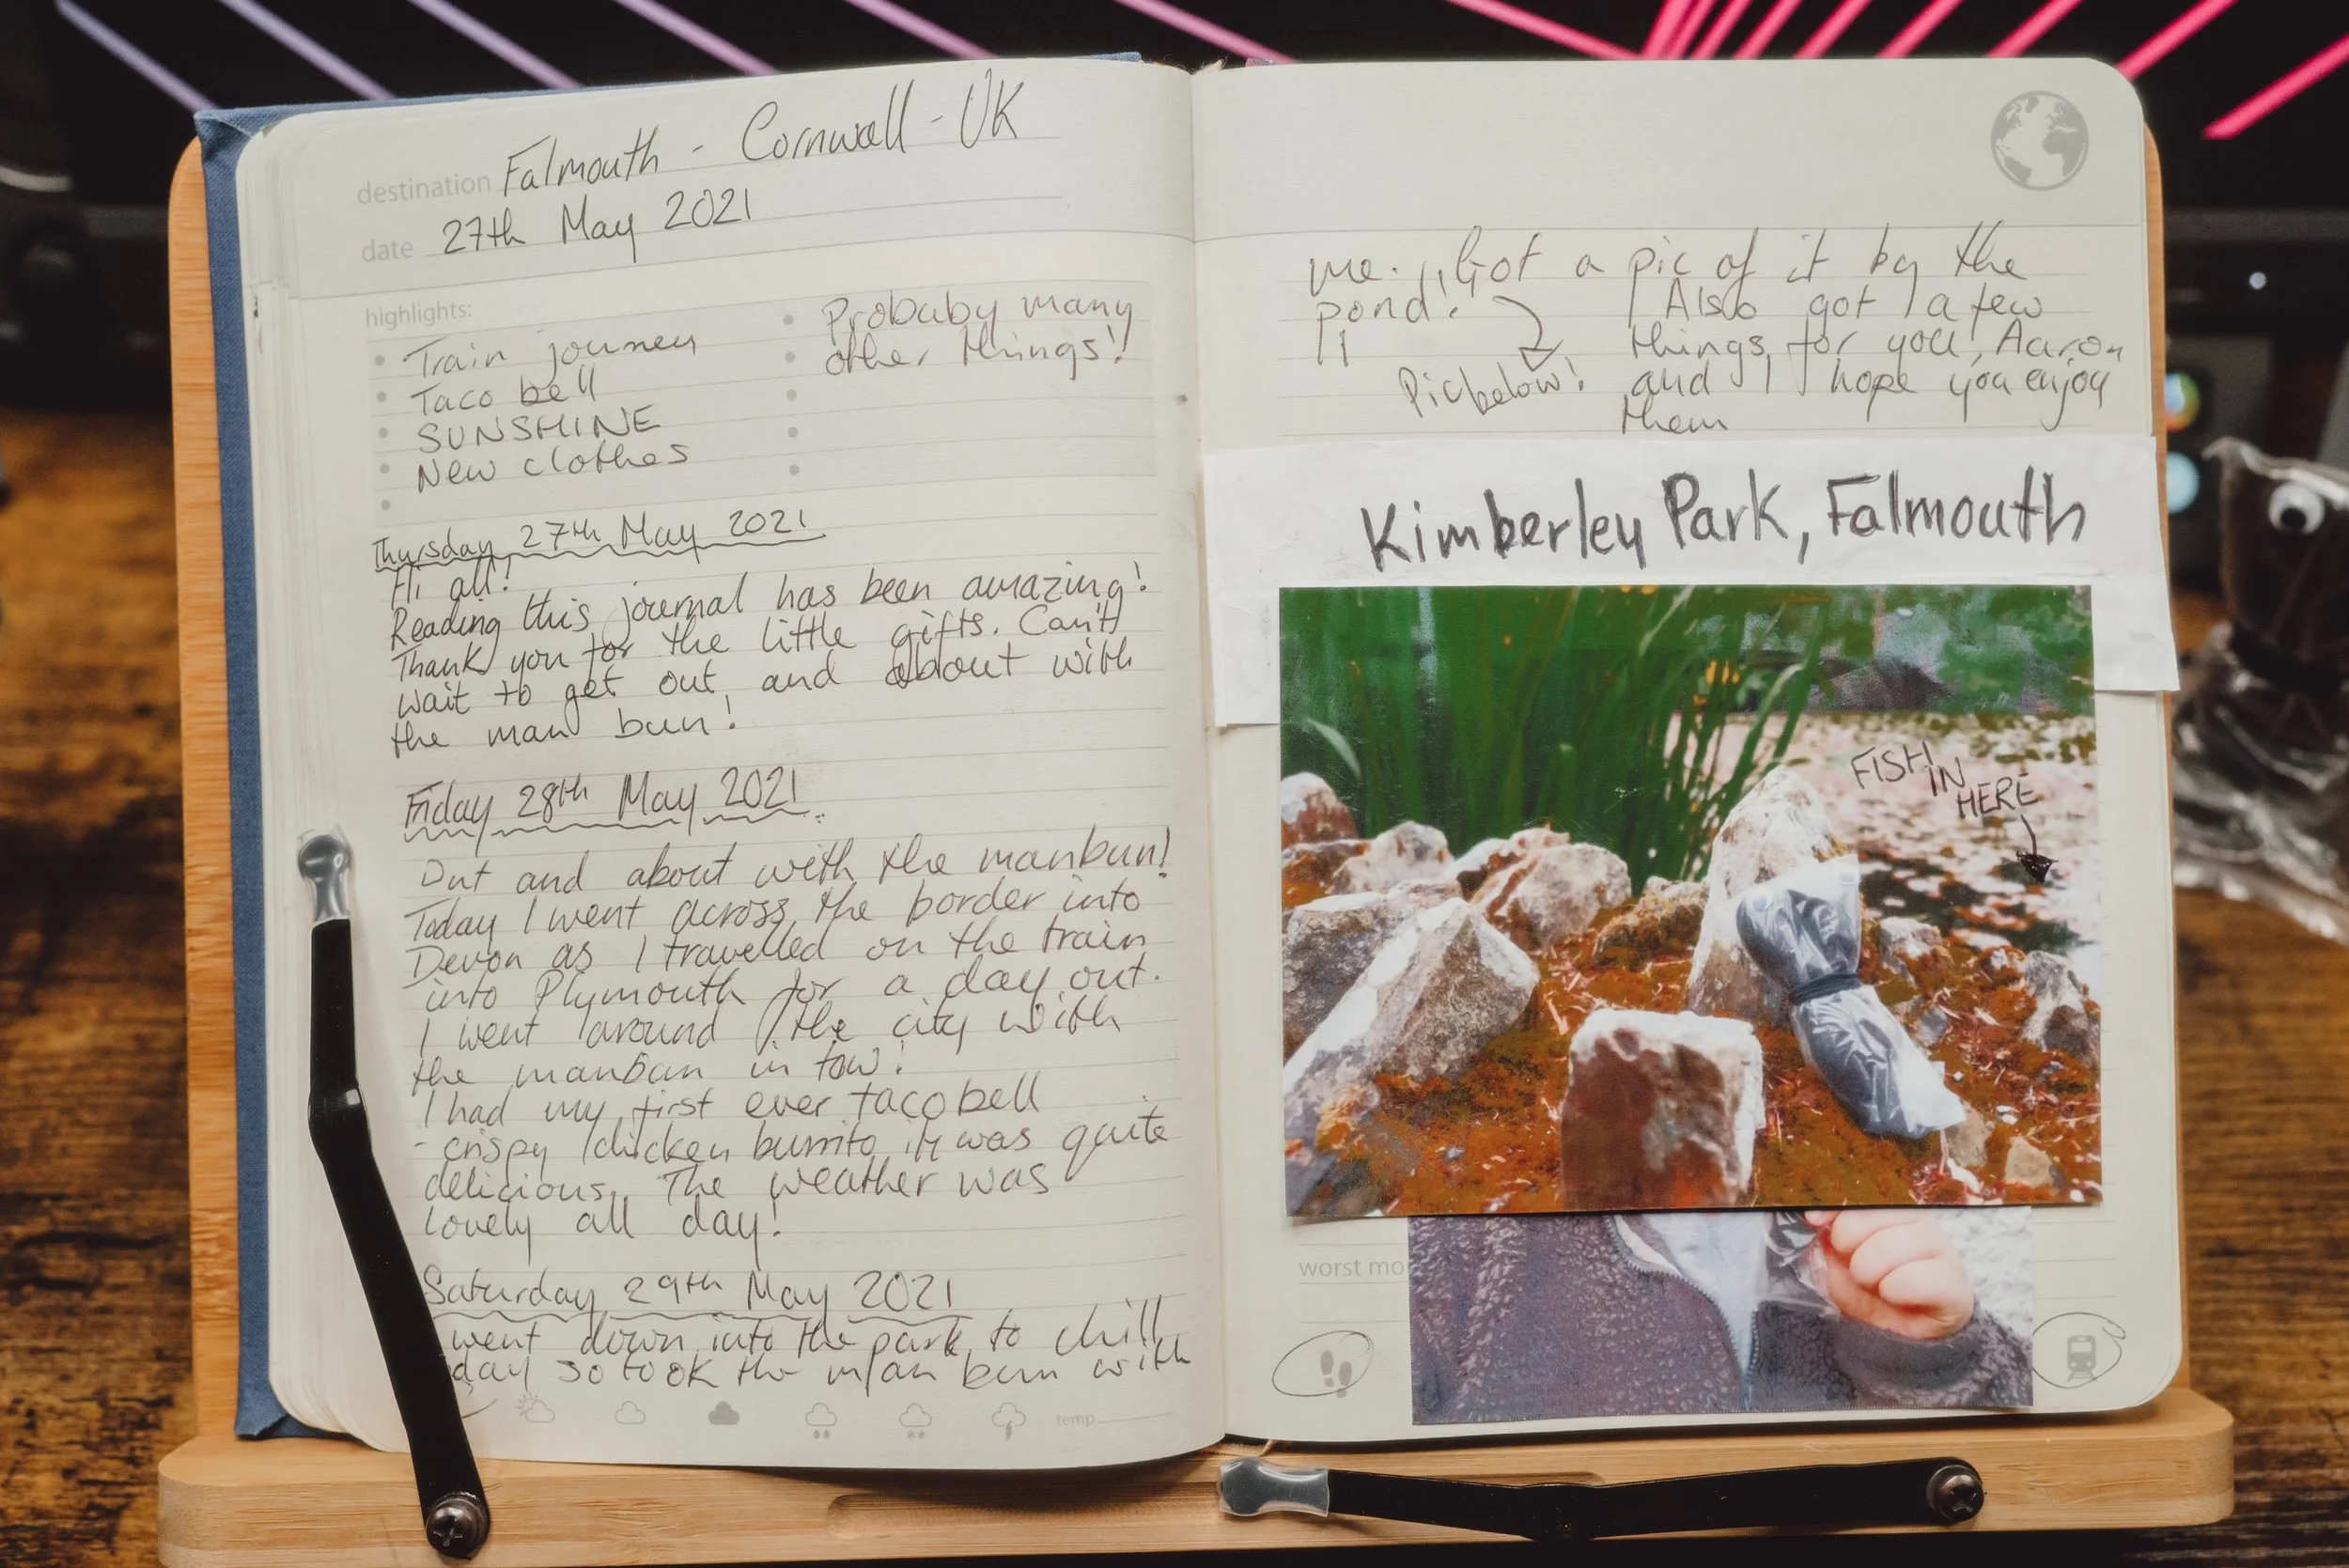 destination Falmouth - Cornwall - UK
date 27th May 2021
highlights:
Train journey
Taco bell
SUNSHINE
New clothes
Probaby many
other things!
Thursday 27th May 2021
Hi all!
Reading this journal has been amazing!
Thank you for the little gifts. Can't
wait to get out and about with
the man bun!
Friday 28th May 2021
Out and about with the manbun!
Today I went across the border into
Devon as I travelled on the train
into Plymouth for a day out.
I went around the city with
the manbun in tow!
I had my first ever taco bell
- crispy chicken burrito it was quite
delicious. The weather was
lovely all day!
Saturday 29th May 2021
went down into the park to chill
day so took the man bun with
temp
me. Got a pic of it by the
pond!
Pic below!
Also got a few
things for you, Aaron
and I hope you enjoy
them
Kimberley Park, Falmouth
FISH IN HERE
worst mo